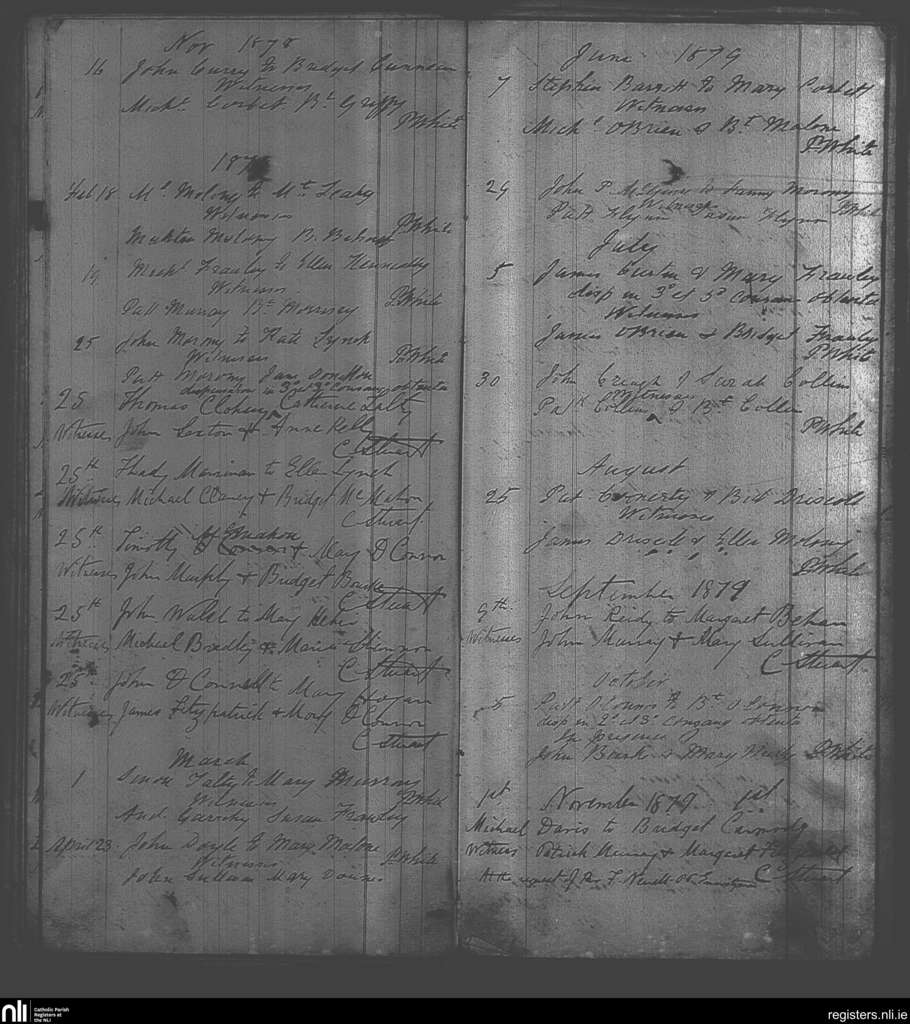 Nov 1878
16 John Curry to Bridget Cunneen
Witnesses
Michl Corbet Bt Griffy
P White
187
Feb 18 Ml Molony to Mt Leary
Witnesses
Molony B.
P White
19 Michl Frawley to Ellen Kennedy
Witnesses
Patt Murray Bt Morrissey P White
25 John Morony to Kate Lynch
Witnesses P White
Patt Morony Jane
dispensation in 3 et 3 consang obtenta
25 Thomas Clohessy Catherine Talty
Witnesses John Sexton & Anne Kelly
C Stuart
25th Thady Marrinan to Ellen Lynch
Witnesses Michael Clancy & Bridget McMahon
C Stuart
McMahon
25th Timothy O Connor & Mary O Connor
Witnesses John Murphy & Bridget Bourke
C Stuart
25th John Walsh to Mary Hehir
Witnesses Michael Bradley & Maria
C Stuart
25th John O Connell to Mary Hogan
Witnesses James Fitzpatrick & Mary O Connor
C Stuart
March
1 Simon Talty to Mary Murrony
Witnesses P White
And. Garrihy Susan Frawley
April 23 John Doyle to Mary Malone
Witnesses P White
John Sullivan Mary Downes
June 1879
7 Stephen Barrett to Mary Corbett
Witnesses
Michl OBrien & Bt Malone
P White
29 John P. to Fanny Morony
Witnesses
Patt Flynn Flynn P White
July
5 James Curtin & Mary Frawley
disp in 3o et 3o consan obtenta
Witnesses
James OBrien & Bridget Frawley
P White
30 John Creagh & Sarah Collins
Witnesses
Patk Collins & Bt Collin
P White
August
25 Pat Conerty & Bid Driscoll
Witnesses
James Driscoll & Ellen Molony
P White
September 1879
9th John Reidy to Margaret Behan
Witnesses John Murray & Mary Sullivan
C Stuart
October
5 Patt OConnor to Bt O Connor
disp in 2o et 3o consang obtenta
In presence of
John & Mary P White
1st November 1879 1st
Michael Davis to Bridget
Witness Patrick Murray & Margaret
At the request of Rev T Newell PP Ennistymon C Stuart
nli Catholic Parish
Registers at
the NLI
registers.nli.ie